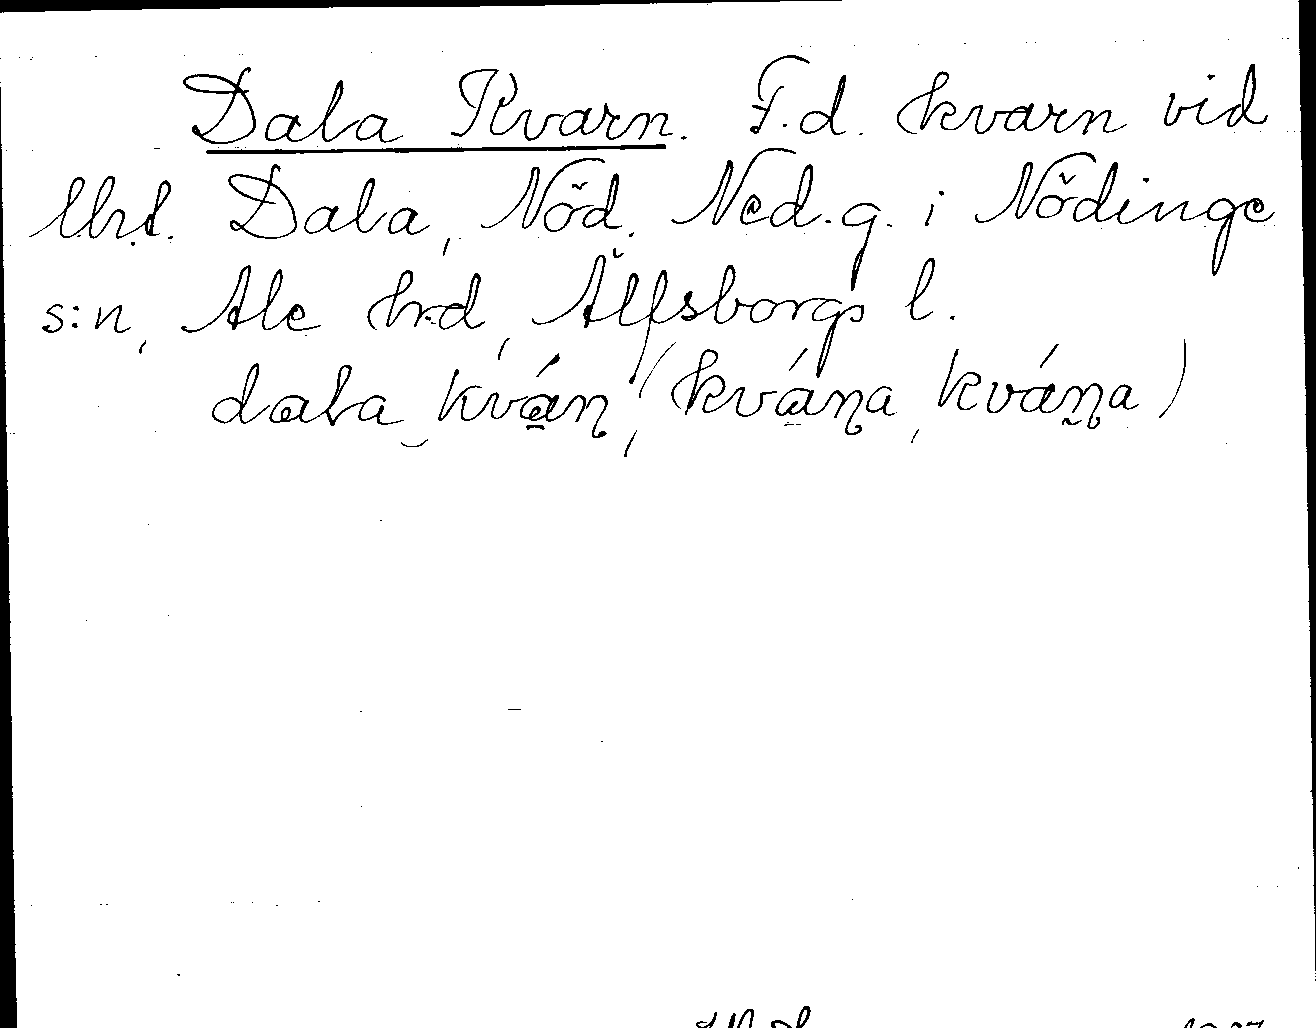 Dala Kvarn. F.d. kvarn vid
lht. Dala, Nöd. Ned.g. i Nödinge
s:n, Ale hrd, Älfsborgs l.
dala kván, (kvána, kvána)